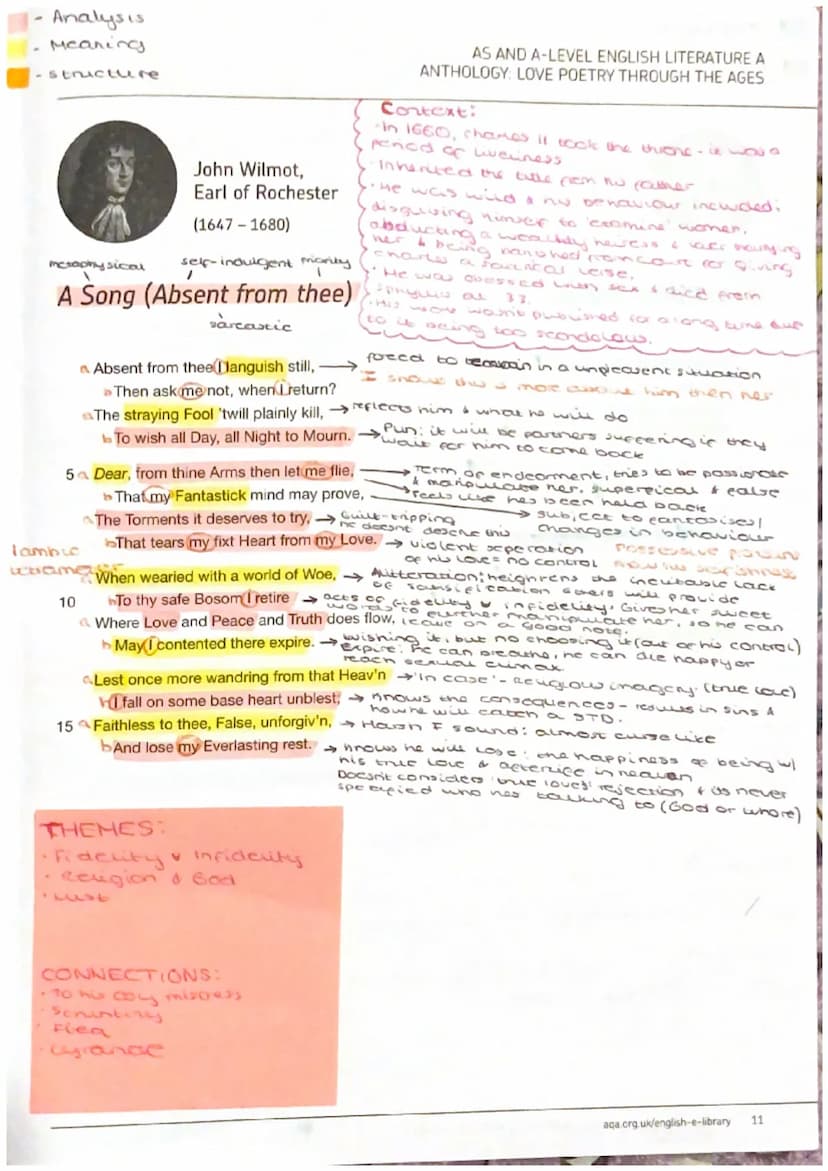 - Analysis
- Meaning
- structure
AS AND A-LEVEL ENGLISH LITERATURE A
ANTHOLOGY: LOVE POETRY THROUGH THE AGES
Context:
· In 1660, Charles II took the throne - it was a
period of liveliness
· Inherited the title from his father
· He was wild & his behaviour included:
disguising himself to 'examine' women,
abducting a wealthy heiress & later marrying
her & being banished from court for giving
Charles a satirical verse.
· He was obsessed with sex & died from
syphylis at 33.
· His work wasn't published for a long time due
to it being too scandolous.
John Wilmot,
Earl of Rochester
(1647 – 1680)
metaphysical
self-indulgent
priority
A Song (Absent from thee)
sarcastic
a Absent from thee I languish still, → forced to remain in a unpleasent situation
b Then ask me not, when I return? I shows this is more about him then her
a The straying Fool 'twill plainly kill, → reflects him & what he will do
b To wish all Day, all Night to Mourn. → Pun: it will be partners suffering if they
wait for him to come back
5 a Dear, from thine Arms then let me flie, → Term of endearment, tries to be passionate
& manipulate her, superfical & false
b That my Fantastick mind may prove, → feels like hes been held back
→ subject to fantasises/
changes in behaviour
a The Torments it deserves to try, → Guilt-tripping
he doesnt deserve this
b That tears my fixt Heart from my Love. → violent seperation
of his love = no control
Possessive pronoun
Iambic
tetrameter
a When wearied with a world of Woe, → Alitteration: heightens the inevitable lack
of satisfication others will provide
10 b To thy safe Bosom I retire → acts of fidelity v infidelity. Gives her sweet
words to further manipulate her, so he can
leave on a good note.
a Where Love and Peace and Truth does flow,
b May I contented there expire. → wishing it, but no choosing it (out of his control)
Expire: he can breathe, he can die happy or
reach sexual climax
a Lest once more wandring from that Heav'n → 'In case' - Religious imagery. (true love)
b I fall on some base heart unblest; → knows the consequences - results in sins &
how he will catch a STD.
15 a Faithless to thee, False, unforgiv'n, → Harsh F sound: almost curse like
b And lose my Everlasting rest. → knows he will lose: the happiness of being w/
his true love & afterlife in heaven
Doesn't considers 'true loves' rejection & is never
specified who hes talking to (God or whore)
THEMES:
· Fidelity v Infidelity
· Religion & God
· Lust
CONNECTIONS:
· To his coy mistress
· Scrutiny
· Flea
aqa.org.uk/english-e-library 11